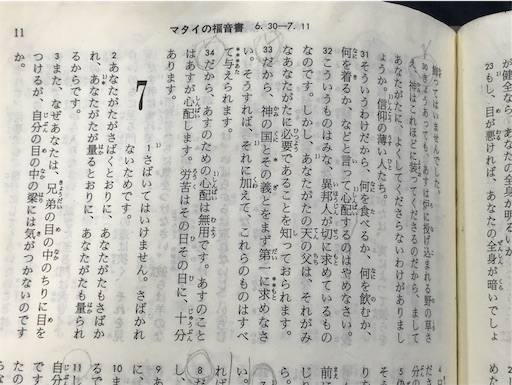 11
マタイの福音書 6.30―7.11
飾ってはいませんでした。
30 きょうあっても、あすは炉に投げ込まれる野の草さ
え、神はこれほどに装ってくださるのだから、まして
あなたがたに、よくしてくださらないわけがありまし
ょうか。信仰の薄い人たち。
31 そういうわけだから、何を食べるか、何を飲むか、
何を着るか、などと言って心配するのはやめなさい。
32 こういうものはみな、異邦人が切に求めているもの
なのです。しかし、あなたがたの天の父は、それがみ
なあなたがたに必要であることを知っておられます。
33 だから、神の国とその義とをまず第一に求めなさ
い。そうすれば、それに加えて、これらのものはすべ
て与えられます。
34 だから、あすのための心配は無用です。あすのこと
はあすが心配します。労苦はその日その日に、十分
あります。
7
1 さばいてはいけません。さばかれ
ないためです。
2 あなたがたがさばくとおりに、あなたがたもさばか
れ、あなたがたが量るとおりに、あなたがたも量られ
るからです。
3 また、なぜあなたは、兄弟の目の中のちりに目を
つけるが、自分の目の中の梁には気がつかないのです
か。
が健全なら、あなたの全身が明るい
23 もし、目が悪ければ、あなたの全身が暗いでしょ